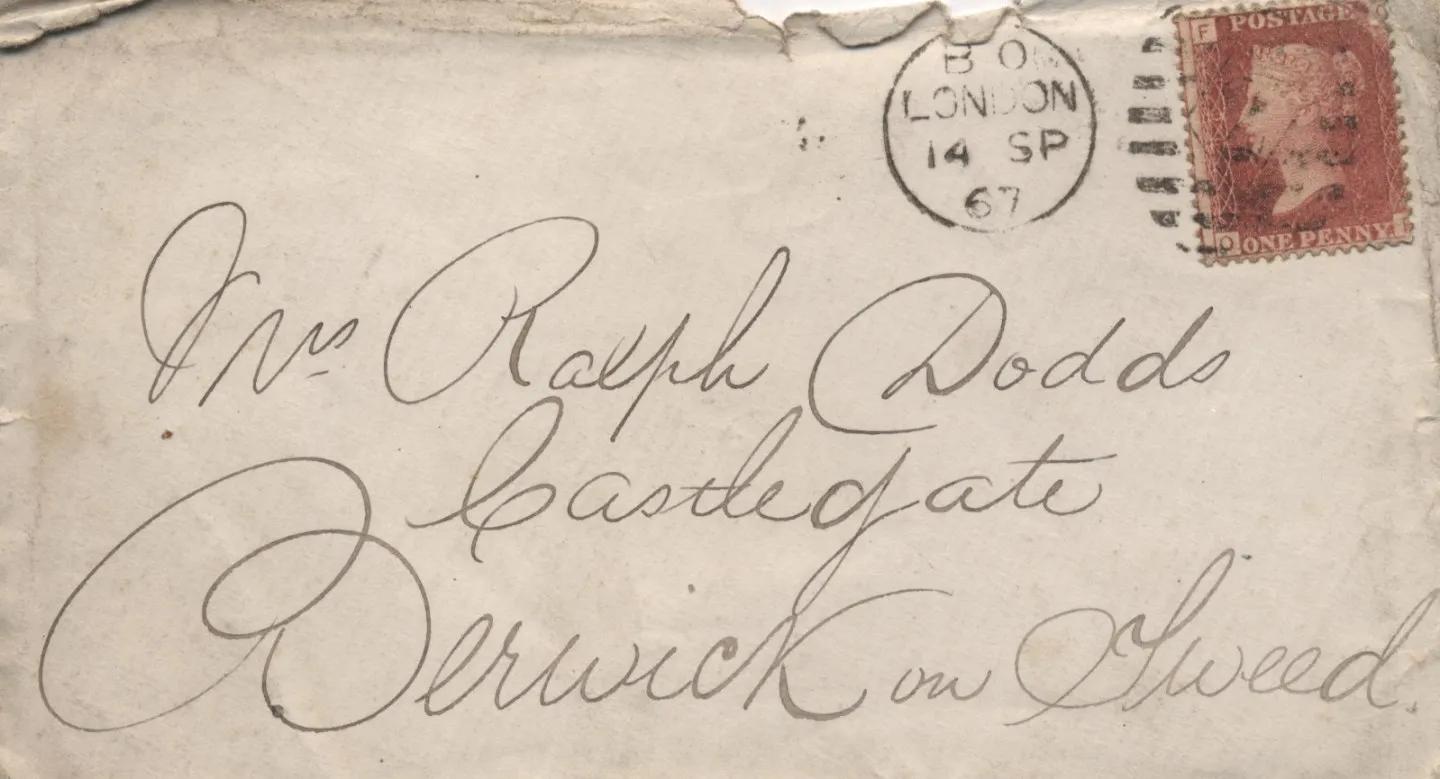 B O
LONDON
14 SP
67
F
POSTAGE
O
ONE PENNY.
Mrs Ralph Dodds
Castlegate
Berwick on Tweed.